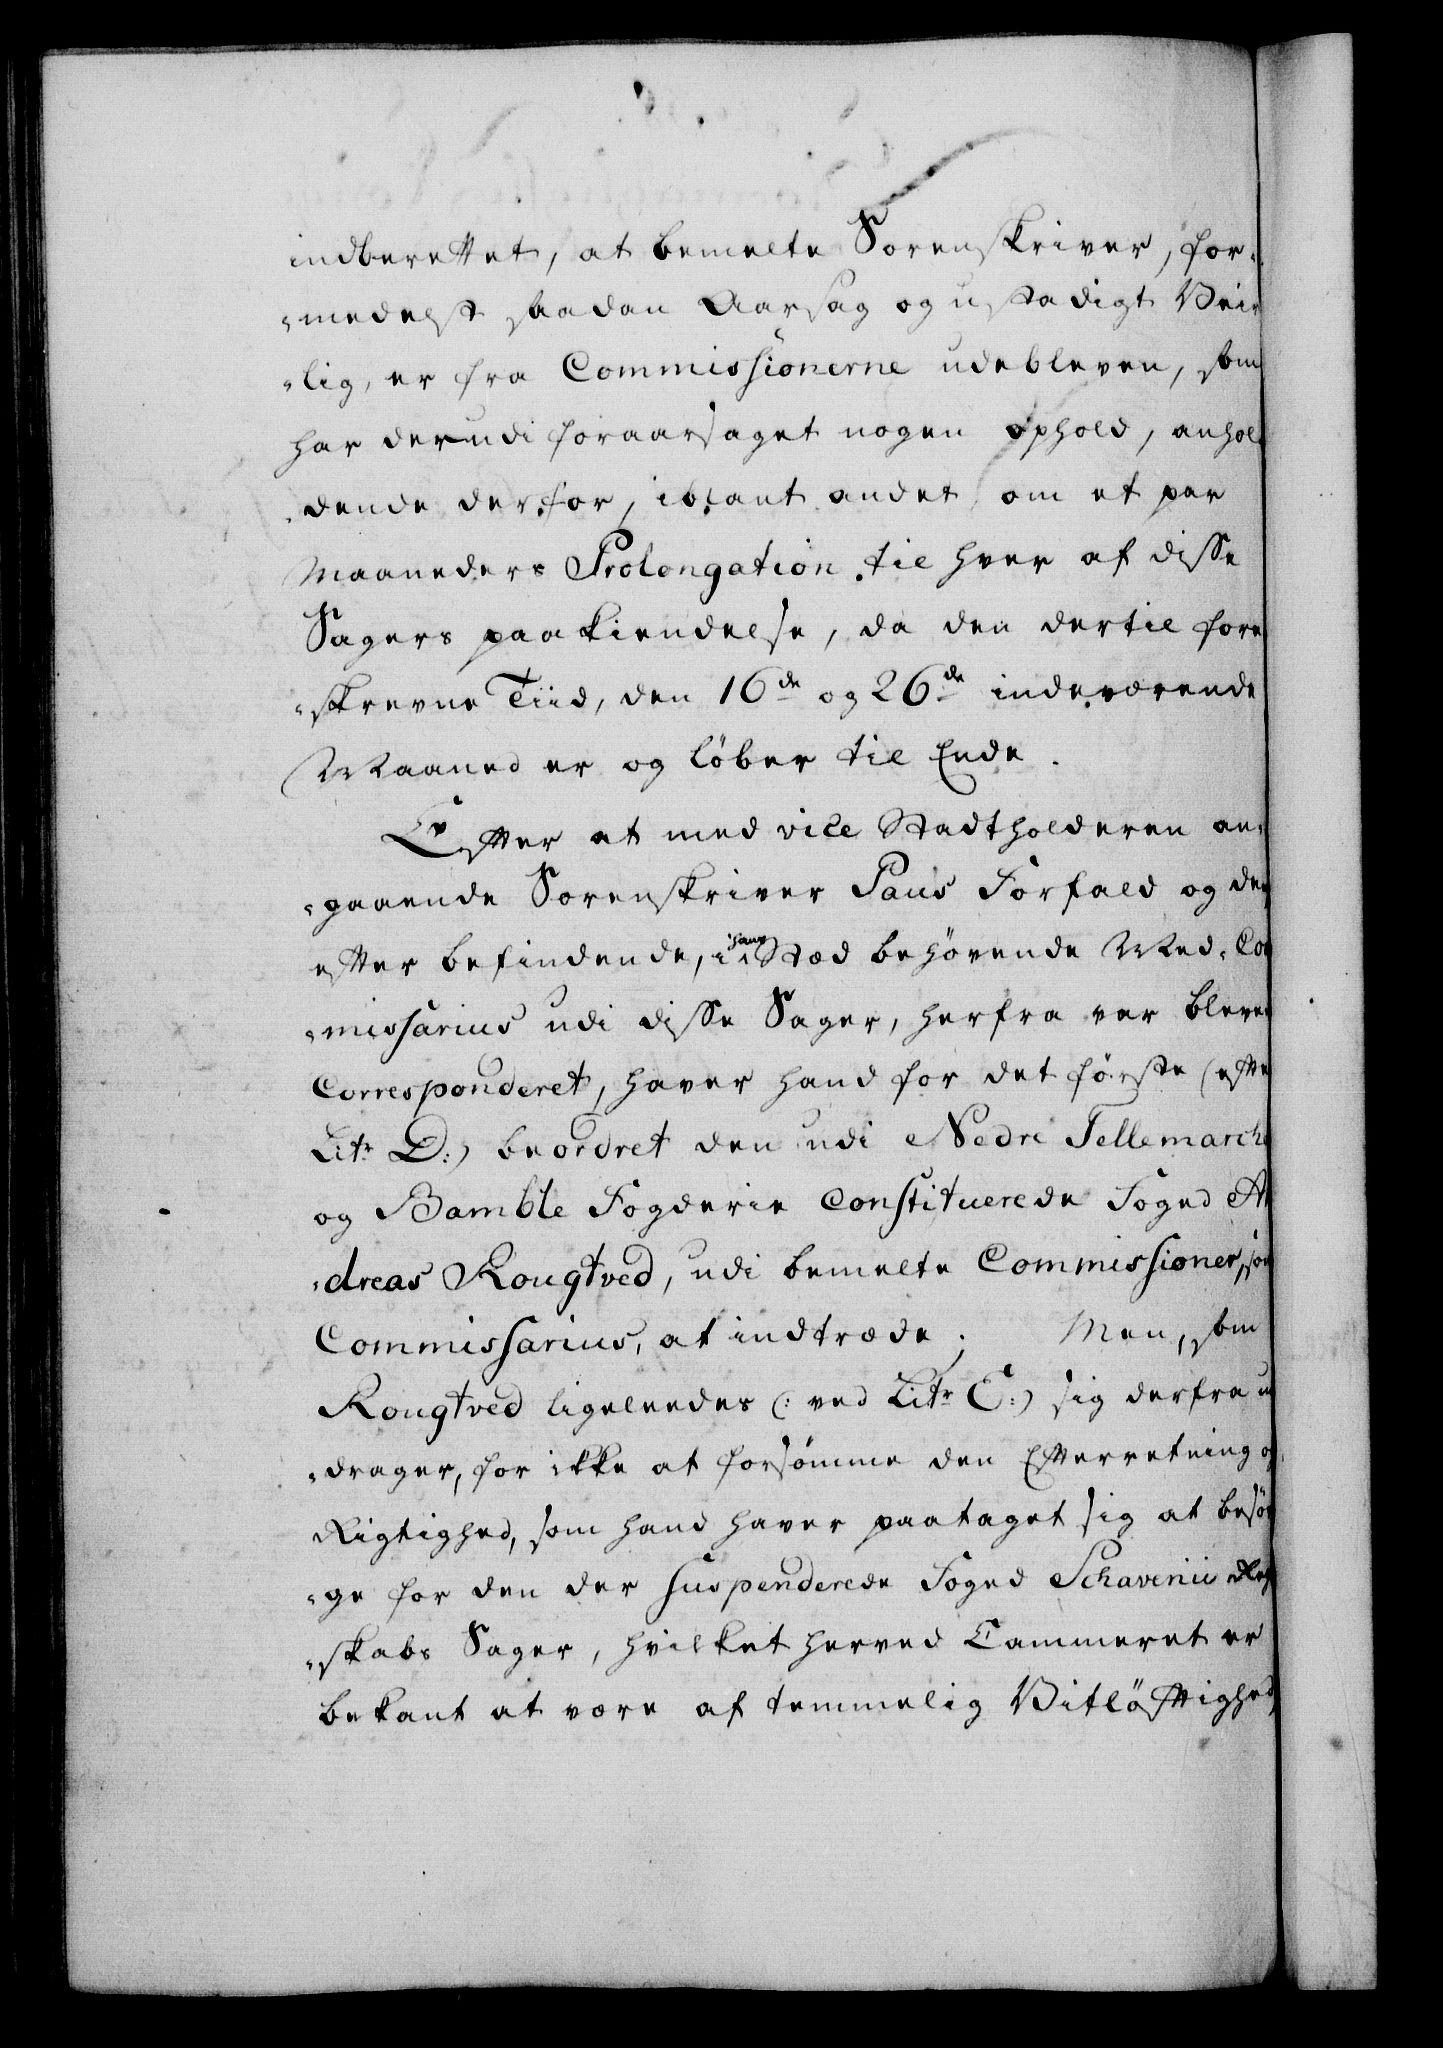 indberettet, at bemelte Sorenskriver, for-
-medelst saadan Aarsag og ustadigt Veir
-lig, er fra Commissionerne udebleven, som
har derudi foraarsaget nogen Ophold, anhol
-dende derfor, iblant andet om et par
Maaneders Prolongation til hver af disse
Sagers paakiendelse, da den dertil fore
-skrevne Tiid, den 16de og 26de indeværende
Maaned er og løber til Ende.
Efter at med vice Stadtholderen an-
-gaaende Sorenskriver Paus Forfald og der
efter befindende, i hans Stæd behøvende Med-Com
-missarius udi disse Sager, herfra var bleven
Corresponderet, haver hand for det første (efter
Litr D:) beordret den udi Nedre Tellemarchen
og Bamble Fogderie Constituerede Foged An
-dreas Rougtved, udi bemelte Commissioner, som
Commissarius, at indtræde; Men, som
Rougtved ligeleedes (: ved Litr E:) sig derfra u
-drager, for ikke at forsømme den Efterretning og
Rigtighed, som hand haver paataget sig at besør
-ge for den der suspenderede Foged Schavenii Reg
-skabs Sager, hvilket herved Cammeret er
bekant at være af temmelig Vitløftighed,